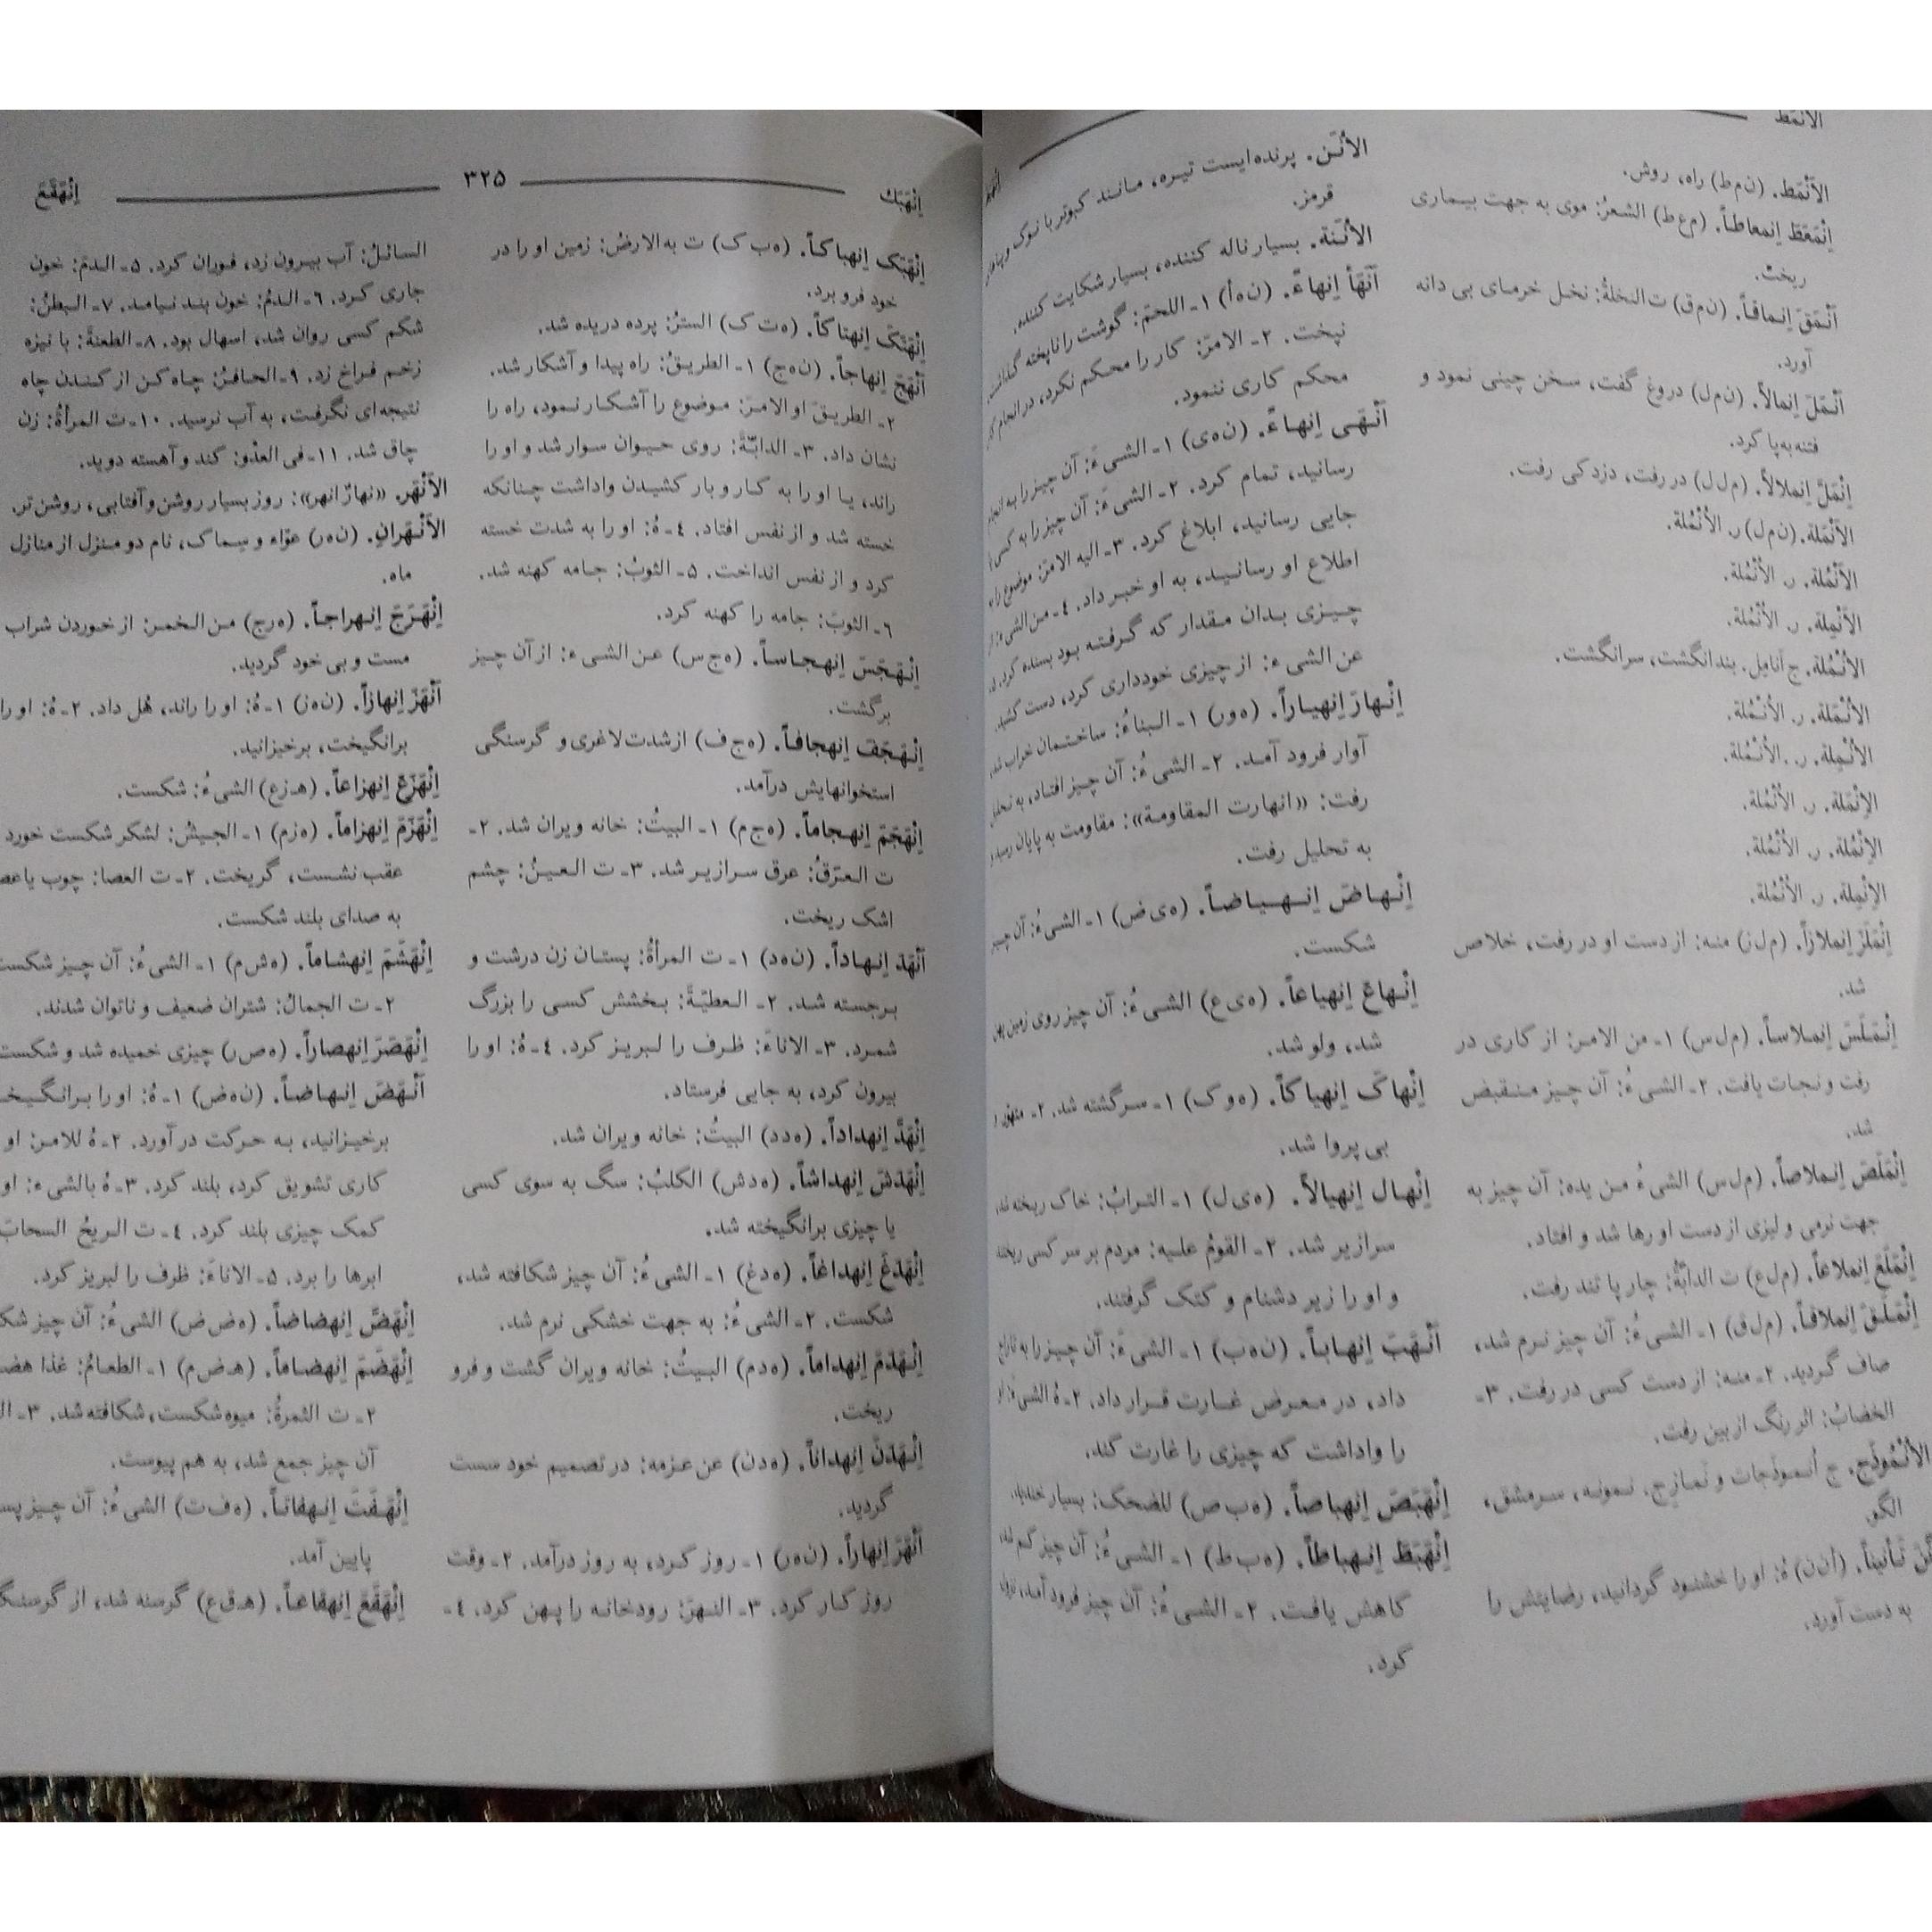 الأنمَط
الأَنْمَط. (ن م ط) راه، روش.
اِنْمَعَطَ اِنمعاطاً. (م ع ط) الشعرُ: موی به جهت بیماری
ریخت.
أَنْمَقَ اِنماقاً. (ن م ق) ت النخلةُ: نخل خرمای بی دانه
آورد.
أَنْمَلَ اِنمالاً. (ن م ل) دروغ گفت، سخن چینی نمود و
فتنه به پا کرد.
اِنْمَلَّ اِنملالاً. (م ل ل) در رفت، دزدکی رفت.
الأَنْمَلة. (ن م ل) ر. الأُنْمُلة.
الأَنْمُلة. ر. الأُنْمُلة.
الأَنْمِلة. ر. الأُنْمُلة.
الأُنْمُلة. ج أنامِل. بند انگشت، سرانگشت.
الأُنْمَلة. ر. الأُنْمُلة.
الأُنْمِلة. ر. الأُنْمُلة.
الإِنْمَلة. ر. الأُنْمُلة.
الإِنْمُلة. ر. الأُنْمُلة.
الإِنْمِلة. ر. الأُنْمُلة.
اِنْمَلَزَ اِنملازاً. (م ل ز) منه: از دست او در رفت، خلاص
شد.
اِنْمَلَسَ اِنملاساً. (م ل س) ١ـ من الامر: از کاری در
رفت و نجات یافت. ٢ـ الشیءُ: آن چیز منقبض
شد.
اِنْمَلَصَ اِنملاصاً. (م ل س) الشیءُ من یده: آن چیز به
جهت نرمی و لیزی از دست او رها شد و افتاد.
اِنْمَلَعَ اِنملاعاً. (م ل ع) ت الدابَّةُ: چارپا تند رفت.
اِنْمَلَقَ اِنملاقاً. (م ل ق) ١ـ الشیءُ: آن چیز نرم شد،
صاف گردید. ٢ـ منه: از دست کسی در رفت. ٣ـ
الخضابُ: اثر رنگ از بین رفت.
الأُنْمُوذَج. ج أُنموذَجات و نَمازِج. نمونه، سرمشق،
الگو.
تَأنیناً. (أ ن ن) هُ: او را خشنود گردانید، رضایتش را
به دست آورد.
الأَنَن. پرنده ایست تیره، مانند کبوتر با نوک و
قرمز.
الأُنَنة. بسیار ناله کننده، بسیار شکایت کننده.
أَنْهَأَ اِنهاءً. (ن ه أ) ١ـ اللحمَ: گوشت را ناپخته گذاشت،
نپخت. ٢ـ الامرَ: کار را محکم نکرد، در انجام
محکم کاری ننمود.
أَنْهَی اِنهاءً. (ن ه ی) ١ـ الشیءَ: آن چیز را به انجام
رسانید، تمام کرد. ٢ـ الشیءَ: آن چیز را به کسی
جایی رسانید، ابلاغ کرد. ٣ـ الیه الامرَ: موضوع را به
اطلاع او رسانید، به او خبر داد. ٤ـ من الشیء: از
چیزی بدان مقدار که گرفته بود بسنده کرد.
عن الشیء: از چیزی خودداری کرد، دست کشید.
اِنْهارَ اِنهیاراً. (ه و ر) ١ـ البناءُ: ساختمان خراب شد،
آوار فرود آمد. ٢ـ الشیءُ: آن چیز افتاد، به تحلیل
رفت: «انهارت المقاومة»: مقاومت به پایان رسید و
به تحلیل رفت.
اِنْهاضَ اِنهیاضاً. (ه ی ض) ١ـ الشیءُ: آن چیز
شکست.
اِنْهاعَ اِنهیاعاً. (ه ی ع) الشیءُ: آن چیز روی زمین پهن
شد، ولو شد.
اِنْهاکَ اِنهیاکاً. (ه و ک) ١ـ سرگشته شد. ٢ـ متهوّر و
بی پروا شد.
اِنْهال اِنهیالاً. (ه ی ل) ١ـ الترابُ: خاک ریخته شد،
سرازیر شد. ٢ـ القومُ علیه: مردم بر سر کسی ریخته
و او را زیر دشنام و کتک گرفتند.
أَنْهَبَ اِنهاباً. (ن ه ب) ١ـ الشیءَ: آن چیز را به تاراج
داد، در معرض غارت قرار داد. ٢ـ هُ الشیءَ: او
را واداشت که چیزی را غارت کند.
اِنْهَبَصَ اِنهباصاً. (ه ب ص) للضحک: بسیار خندید.
اِنْهَبَطَ اِنهباطاً. (ه ب ط) ١ـ الشیءُ: آن چیز کم شد،
کاهش یافت. ٢ـ الشیءُ: آن چیز فرود آمد، نزول
کرد.
اِنْهَبَکَ
٣٢٥
اِنْهَقَعَ
اِنْهَبَکَ اِنهباکاً. (ه ب ک) ت به الارضُ: زمین او را در
خود فرو برد.
اِنْهَتَکَ اِنهتاکاً. (ه ت ک) السترُ: پرده دریده شد.
أَنْهَجَ اِنهاجاً. (ن ه ج) ١ـ الطریقُ: راه پیدا و آشکار شد.
٢ـ الطریقَ او الامرَ: موضوع را آشکار نمود، راه را
نشان داد. ٣ـ الدابّةَ: روی حیوان سوار شد و او را
راند، یا او را به کار و بار کشیدن واداشت چنانکه
خسته شد و از نفس افتاد. ٤ـ هُ: او را به شدت خسته
کرد و از نفس انداخت. ٥ـ الثوبُ: جامه کهنه شد.
٦ـ الثوبَ: جامه را کهنه کرد.
اِنْهَجَسَ اِنهجاساً. (ه ج س) عن الشیء: از آن چیز
برگشت.
اِنْهَجَفَ اِنهجافاً. (ه ج ف) از شدت لاغری و گرسنگی
استخوانهایش درآمد.
اِنْهَجَمَ اِنهجاماً. (ه ج م) ١ـ البیتُ: خانه ویران شد. ٢ـ
ت العرَقُ: عرق سرازیر شد. ٣ـ ت العینُ: چشم
اشک ریخت.
أَنْهَدَ اِنهاداً. (ن ه د) ١ـ ت المرأةُ: پستان زن درشت و
برجسته شد. ٢ـ العطیّةَ: بخشش کسی را بزرگ
شمرد. ٣ـ الاناءَ: ظرف را لبریز کرد. ٤ـ هُ: او را
بیرون کرد، به جایی فرستاد.
اِنْهَدَّ اِنهداداً. (ه د د) البیتُ: خانه ویران شد.
اِنْهَدَشَ اِنهداشاً. (ه د ش) الکلبُ: سگ به سوی کسی
یا چیزی برانگیخته شد.
اِنْهَدَغَ اِنهداغاً. (ه د غ) ١ـ الشیءُ: آن چیز شکافته شد،
شکست. ٢ـ الشیءُ: به جهت خشکی نرم شد.
اِنْهَدَمَ اِنهداماً. (ه د م) البیتُ: خانه ویران گشت و فرو
ریخت.
اِنْهَدَنَ اِنهداناً. (ه د ن) عن عزمه: در تصمیم خود سست
گردید.
أَنْهَرَ اِنهاراً. (ن ه ر) ١ـ روز کرد، به روز درآمد. ٢ـ وقت
روز کار کرد. ٣ـ النهرَ: رودخانه را پهن کرد. ٤ـ
السائلُ: آب بیرون زد، فوران کرد. ٥ـ الدمَ: خون
جاری کرد. ٦ـ الدمُ: خون بند نیامد. ٧ـ البطنُ:
شکم کسی روان شد، اسهال بود. ٨ـ الطعنةَ: با نیزه
زخم فراخ زد. ٩ـ الحافرُ: چاه کن از کندن چاه
نتیجه‌ای نگرفت، به آب نرسید. ١٠ـ ت المرأةُ: زن
چاق شد. ١١ـ فی العدْو: کند و آهسته دوید.
الأَنْهَر. «نهارٌ انهر»: روز بسیار روشن و آفتابی، روشن‌تر.
الأَنْهَرانِ. (ن ه ر) عوّاء و سِماک، نام دو منزل از منازل
ماه.
اِنْهَرَجَ اِنهراجاً. (ه ر ج) من الخمر: از خوردن شراب
مست و بی خود گردید.
أَنْهَزَ اِنهازاً. (ن ه ز) ١ـ هُ: او را راند، هُل داد. ٢ـ هُ: او را
برانگیخت، برخیزانید.
اِنْهَزَعَ اِنهزاعاً. (هـ ز ع) الشیءُ: شکست.
اِنْهَزَمَ اِنهزاماً. (ه ز م) ١ـ الجیشُ: لشکر شکست خورد
عقب نشست، گریخت. ٢ـ ت العصا: چوب یا عصا
به صدای بلند شکست.
اِنْهَشَمَ اِنهشاماً. (ه ش م) ١ـ الشیءُ: آن چیز شکست
٢ـ ت الجمالُ: شتران ضعیف و ناتوان شدند.
اِنْهَصَرَ اِنهصاراً. (ه ص ر) چیزی خمیده شد و شکست
أَنْهَضَ اِنهاضاً. (ن ه ض) ١ـ هُ: او را برانگیخت
برخیزانید، به حرکت درآورد. ٢ـ هُ للامر: او
کاری تشویق کرد، بلند کرد. ٣ـ هُ بالشیء: او
کمک چیزی بلند کرد. ٤ـ ت الریحُ السحابَ
ابرها را برد. ٥ـ الاناءَ: ظرف را لبریز کرد.
اِنْهَضَّ اِنهضاضاً. (ه ض ض) الشیءُ: آن چیز
اِنْهَضَمَ اِنهضاماً. (هـ ض م) ١ـ الطعامُ: غذا
٢ـ ت الثمرةُ: میوه شکست، شکافته شد. ٣ـ
آن چیز جمع شد، به هم پیوست.
اِنْهَفَتَ اِنهفاتاً. (ه ف ت) الشیءُ: آن چیز
پایین آمد.
اِنْهَقَعَ اِنهقاعاً. (هـ ق ع) گرسنه شد، از